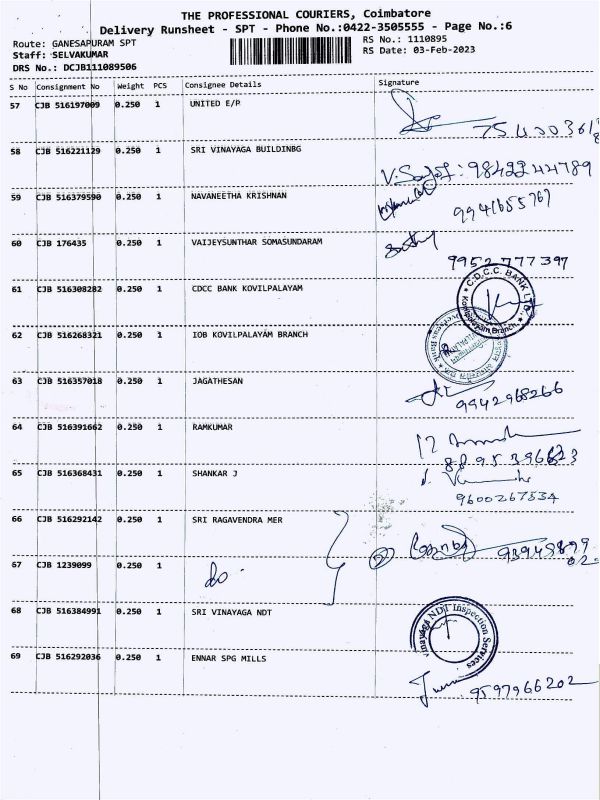 THE PROFESSIONAL COURIERS, Coimbatore
Delivery Runsheet - SPT - Phone No.:0422-3505555 - Page No.:6
Route: GANESAPURAM SPT
Staff: SELVAKUMAR
DRS No.: DCJB111089506
RS No.: 1110895
RS Date: 03-Feb-2023
S No Consignment No Weight PCS Consignee Details Signature
57 CJB 516197009 0.250 1 UNITED E/P
58 CJB 516221129 0.250 1 SRI VINAYAGA BUILDINBG 9842244789
59 CJB 516379590 0.250 1 NAVANEETHA KRISHNAN 9941655767
60 CJB 176435 0.250 1 VAIJEYSUNTHAR SOMASUNDARAM 9952777397
61 CJB 516308282 0.250 1 CDCC BANK KOVILPALAYAM C.D.C.C. BANK LTD., Kovilpalayam Branch
62 CJB 516268321 0.250 1 IOB KOVILPALAYAM BRANCH
63 CJB 516357018 0.250 1 JAGATHESAN 9942968266
64 CJB 516391662 0.250 1 RAMKUMAR
65 CJB 516368431 0.250 1 SHANKAR J 9600267534
66 CJB 516292142 0.250 1 SRI RAGAVENDRA MER
67 CJB 1239099 0.250 1 do
68 CJB 516384991 0.250 1 SRI VINAYAGA NDT Vinayaga NDT Inspection Services
69 CJB 516292036 0.250 1 ENNAR SPG MILLS 9597966202